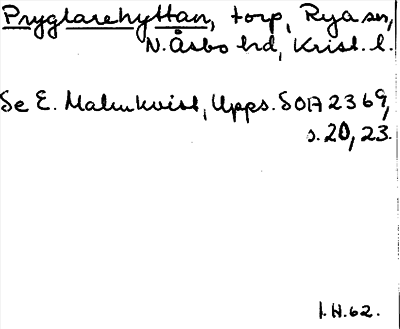 Pryglarehyttan, torp, Rya sn,
N. Åsbo hd, Krist. l.
Se E. Malmkvist, Upps. SOA 2369,
s. 20, 23.
1.H.62.